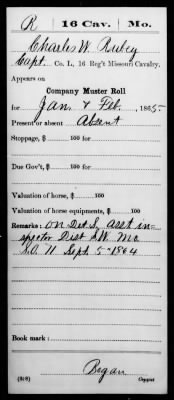 R | 16 Cav. | Mo.
Charles W. Rubey
Capt., Co. L, 16 Reg't Missouri Cavalry.
Appears on
Company Muster Roll
for Jan & Feb, 1865
Present or absent Absent
Stoppage, $ 100 for
Due Gov't, $ 100 for
Valuation of horse, $ 100
Valuation of horse equipments, $ 100
Remarks: On Det. S, asst in-
spector Dist S.W. Mo
S.O. 11 Sept 5 1864
Book mark:
Bryan
(858) Copyist